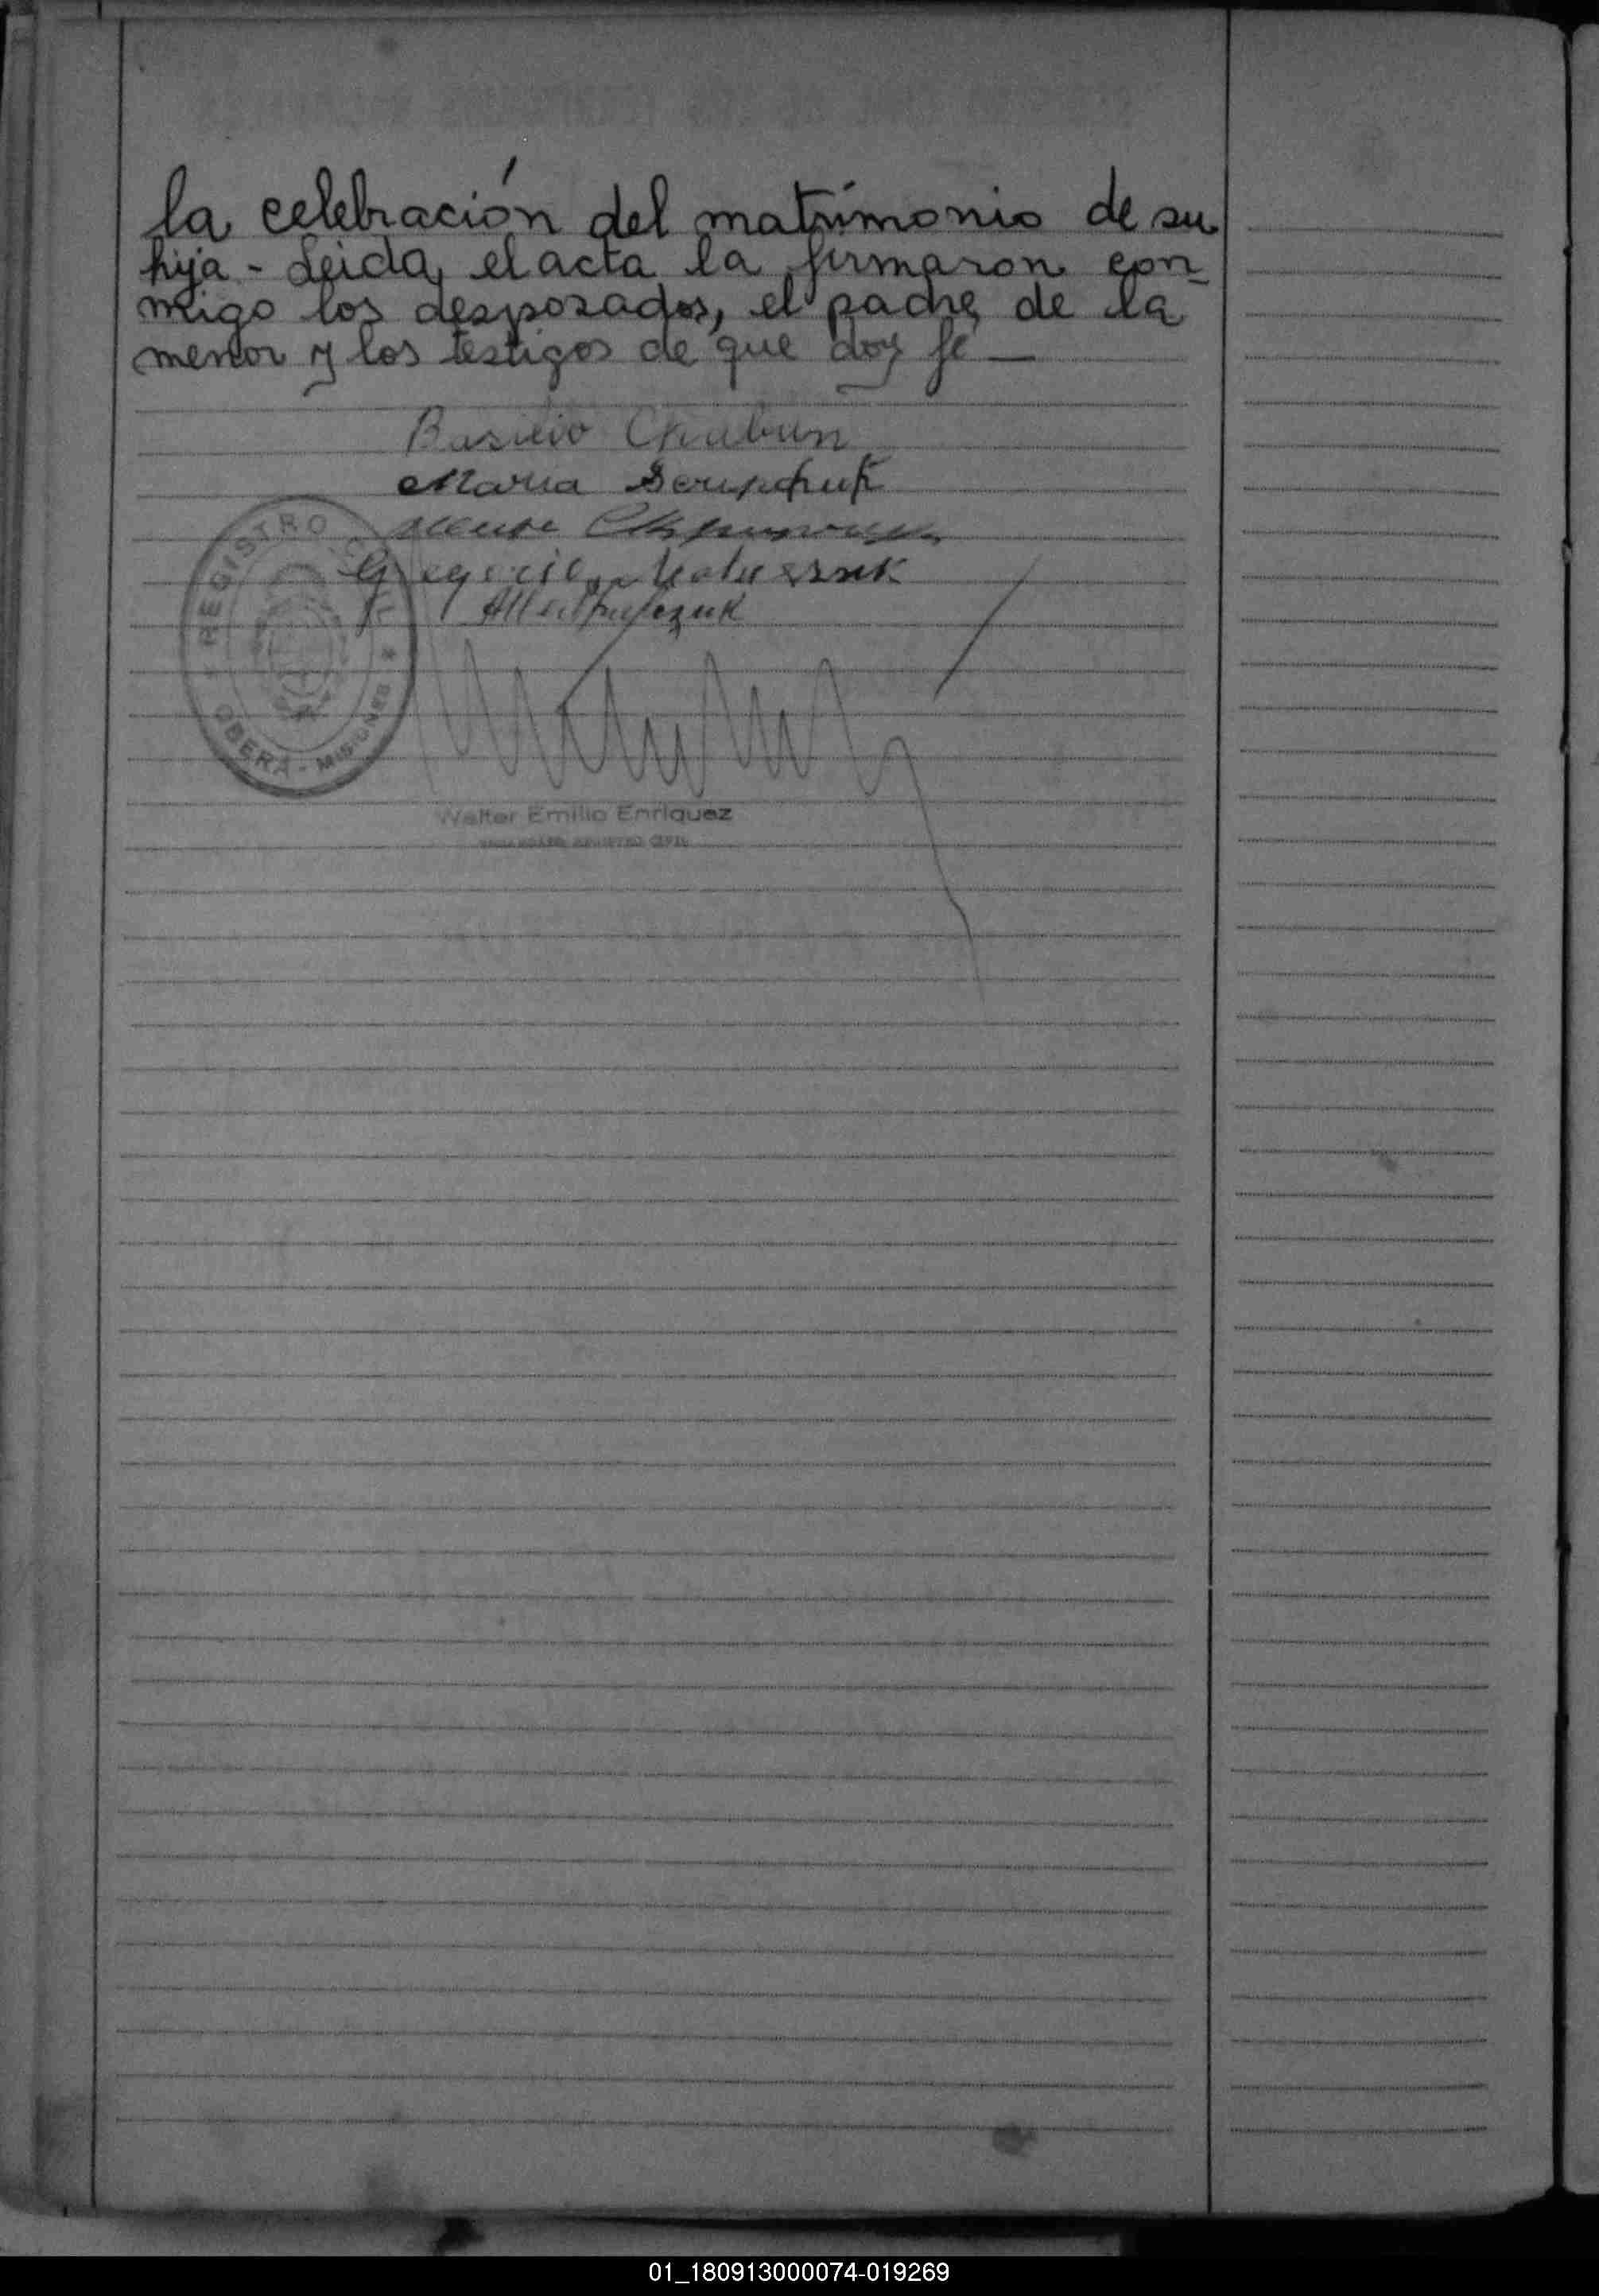 la celebración del matrimonio de su
hija - Leida el acta la firmaron con-
migo los desposados, el padre de la
menor y los testigos de que doy fé —
Basilio Chabun
Maria
REGISTRO CIVIL
OBERÁ - MISIONES
Walter Emilio Enriquez
REGISTRO CIVIL
01_180913000074-019269